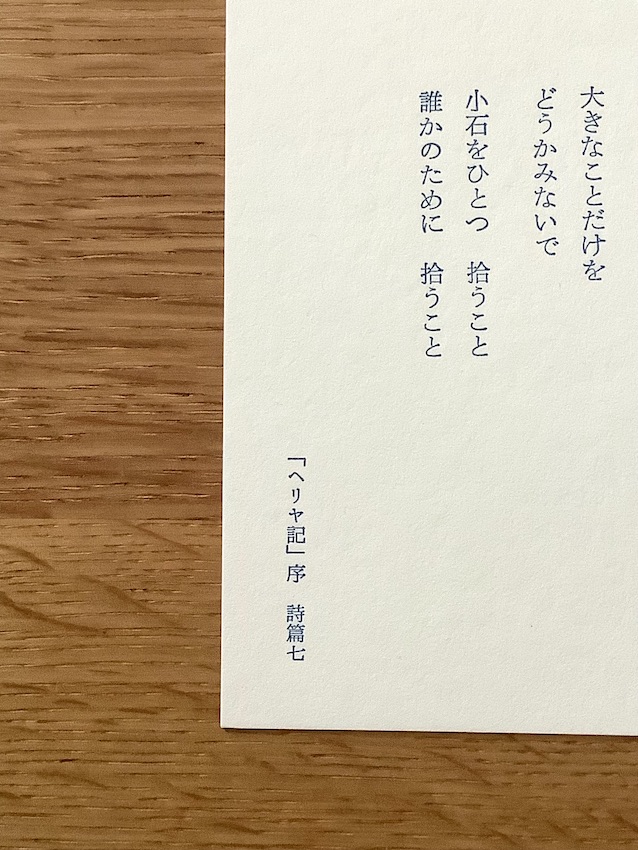 大きなことだけを
どうかみないで
小石をひとつ　拾うこと
誰かのために　拾うこと
「ヘリヤ記」序　詩篇七